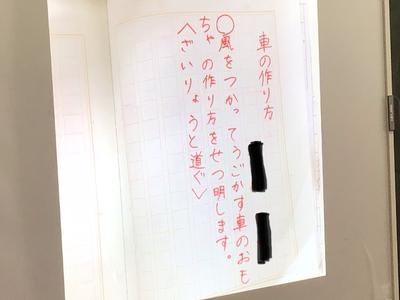 車の作り方
○風をつかってうごかす車のおも
ちゃの作り方をせつ明します。
〈ざいりょうと道ぐ〉